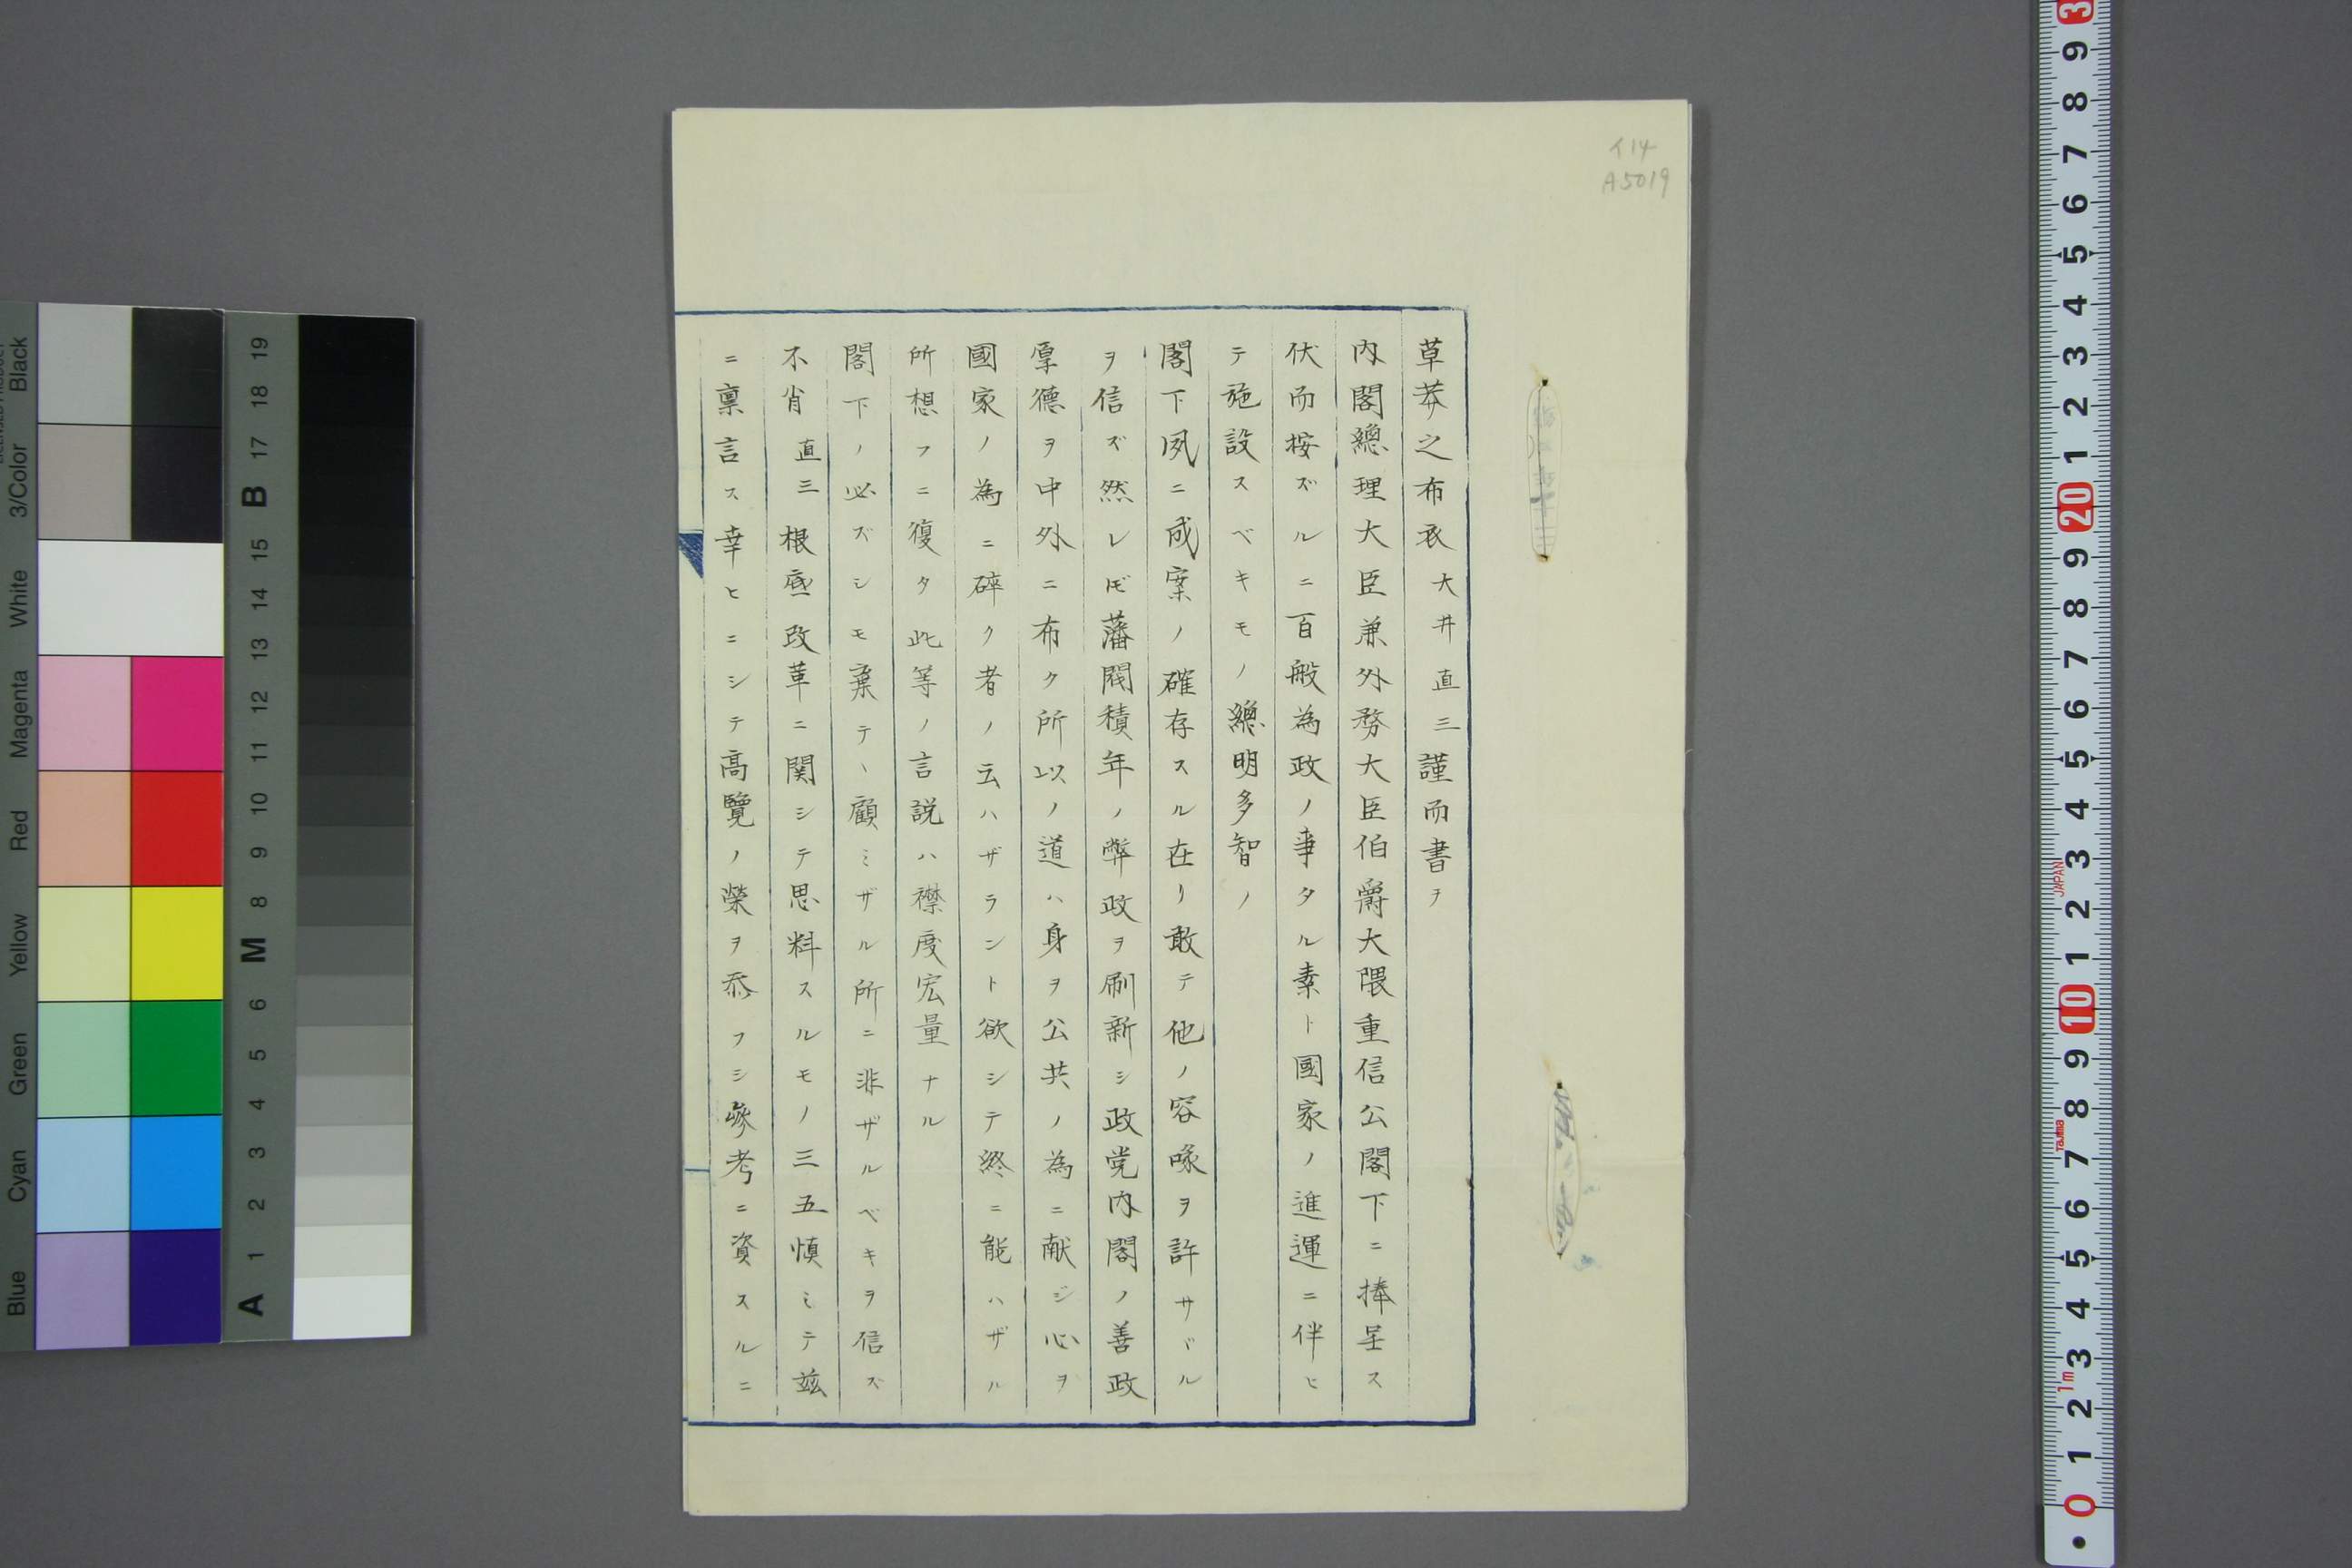 イ14
A5019
草莽之布衣大井直三謹而書ヲ
内閣總理大臣兼外務大臣伯爵大隈重信公閣下ニ捧呈ス
伏而按ズルニ百般為政ノ事タル素ト國家ノ進運ニ伴ヒ
テ施設スベキモノ總明多智ノ
閣下夙ニ成案ノ確存スル在リ敢テ他ノ容喙ヲ許サヾル
ヲ信ズ然レ𪜈藩閥積年ノ弊政ヲ刷新シ政党内閣ノ善政
厚德ヲ中外ニ布ク所以ノ道ハ身ヲ公共ノ為ニ献ジ心ヲ
國家ノ為ニ碎ク者ノ云ハザラント欲シテ終ニ能ハザル
所想フニ復タ此等ノ言説ハ襟度宏量ナル
閣下ノ必ズシモ棄テヽ顧ミザル所ニ非ザルベキヲ信ズ
不肖直三根底政革ニ関シテ思料スルモノ三五慎ミテ茲
ニ稟言ス幸ヒニシテ高覽ノ榮ヲ忝フシ參考ニ資スルニ
Black
3/Color
White
Magenta
Red
Yellow
Green
Cyan
Blue
19
18
17
B
15
14
13
12
11
10
9
8
M
6
5
4
3
2
1
A
3
9
8
7
6
5
4
3
2
1
20
9
8
7
6
5
4
3
JAPAN
2
1
10
9
8
Tajima
7
6
5
4
3
1m
2
1
0